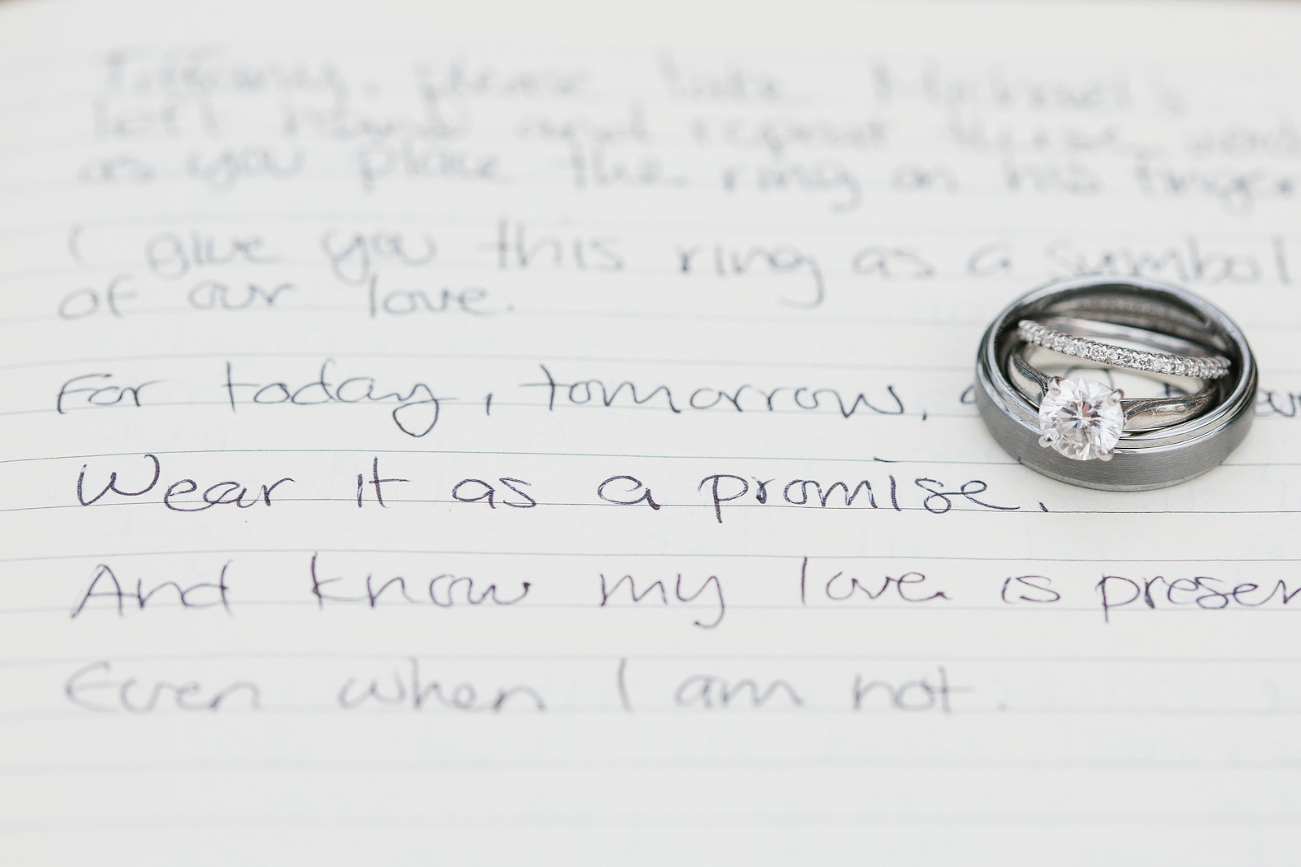 Tiffany, please take Michael's
left hand and repeat these
as you place the ring on his finger
I give you this ring as a symbol
of our love.
For today, tomorrow,
Wear it as a promise.
And know my love is
Even when I am not.